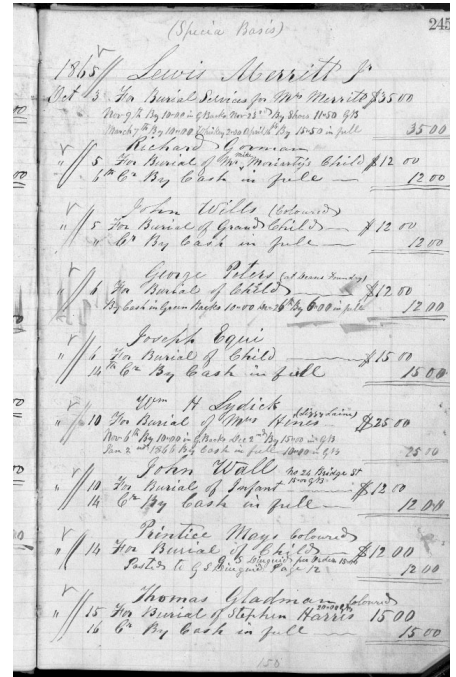 (Specia Basis)
245
1865 // Lewis Merritt Jr
Oct 3 For Burial Services for Mrs Merritt $35 00
Nov 9th By 10=00 in G Backs Nov 23rd By Shoes 11=50 GB
March 7th By 10=00 2=00 April By 15=50 in full 35 00
Richard Gorman
" 5 For Burial of Mrs Moriarty's Child $12 00
6th Cr By Cash in full — 12 00
John Wills (Coloured)
" 5 For Burial of Grand Child — $12 00
" Cr By Cash in full — 12 00
George Peters (at Deans Foundry)
" 6 For Burial of Child — $12 00
By Cash in Green Backs 10=00 By 6=00 in full 12 00
Joseph Equi
" 6 For Burial of Child — $15 00
14th Cr By Cash in full 15 00
Wm H Lydick
" 10 For Burial of Mrs Hines $25 00
Nov 6th By 10=00 in G Backs Dec 2nd By 15=00 in GB
Jan 2nd 1866 By Cash in full 10=00 in GB 25 00
John Wall No 26 Bridge St
" 10 For Burial of Infant — $12 00
14 Cr By Cash in full 12 00
Printice Mays Coloured
" 14 For Burial of Child $12 00
Posted to G S Diuguid Page 12 12 00
Thomas Gladman Coloured
" 15 For Burial of Stephen Harris 15 00
16 Cr By Cash in full — 15 00
150